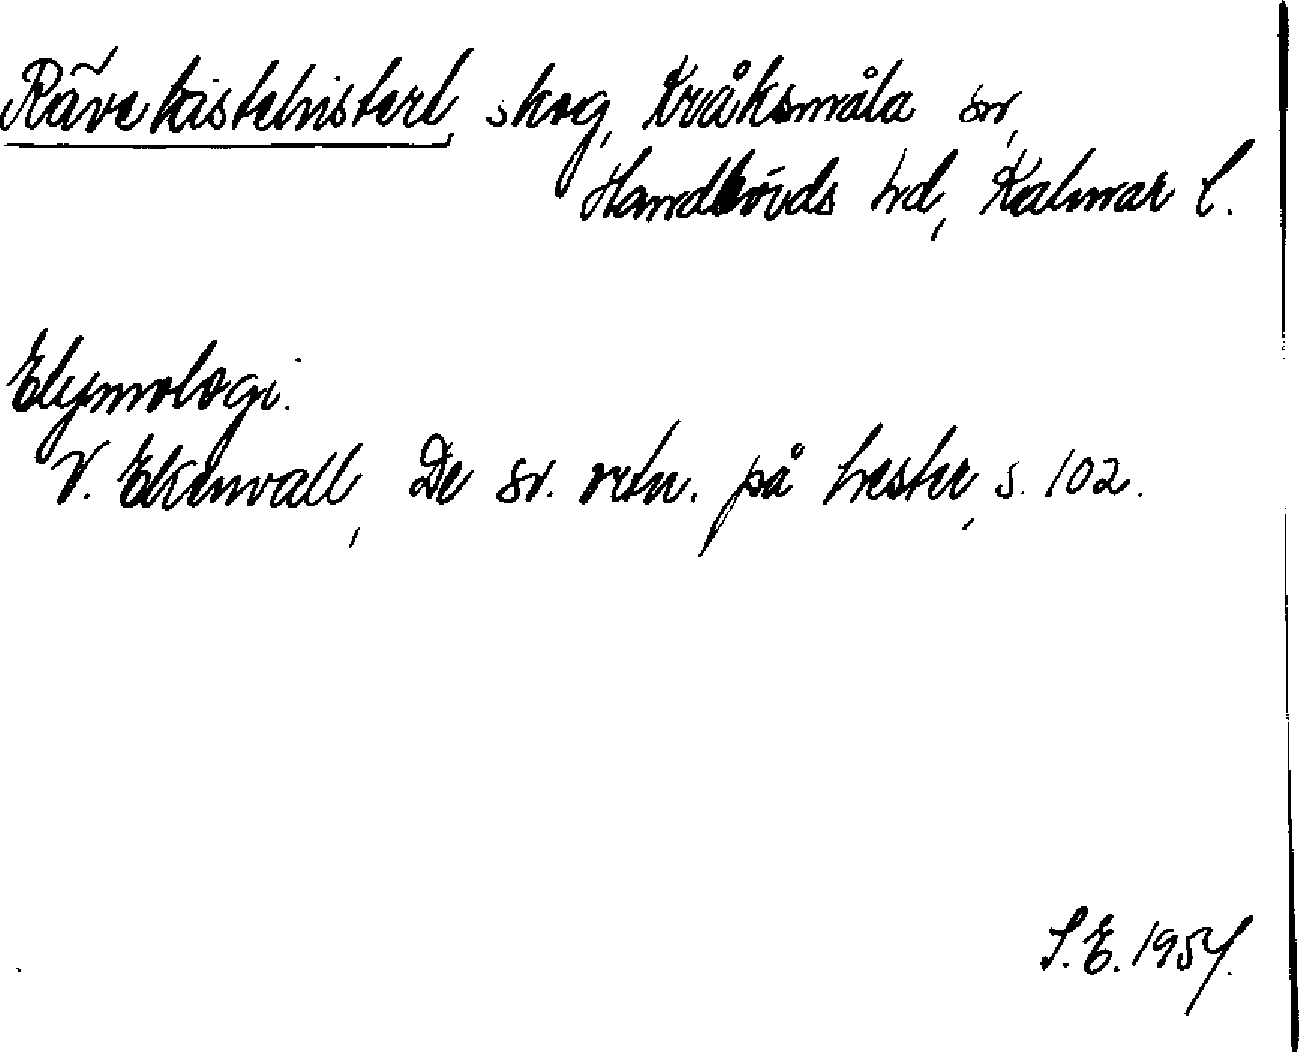 Rävakistehistert, skog, Kråksmåla sn,
Handbörds hd, Kalmar l.
Etymologi.
V. Ekenvall, De sv. ortn. på hester, s. 102.
S.E. 1954.